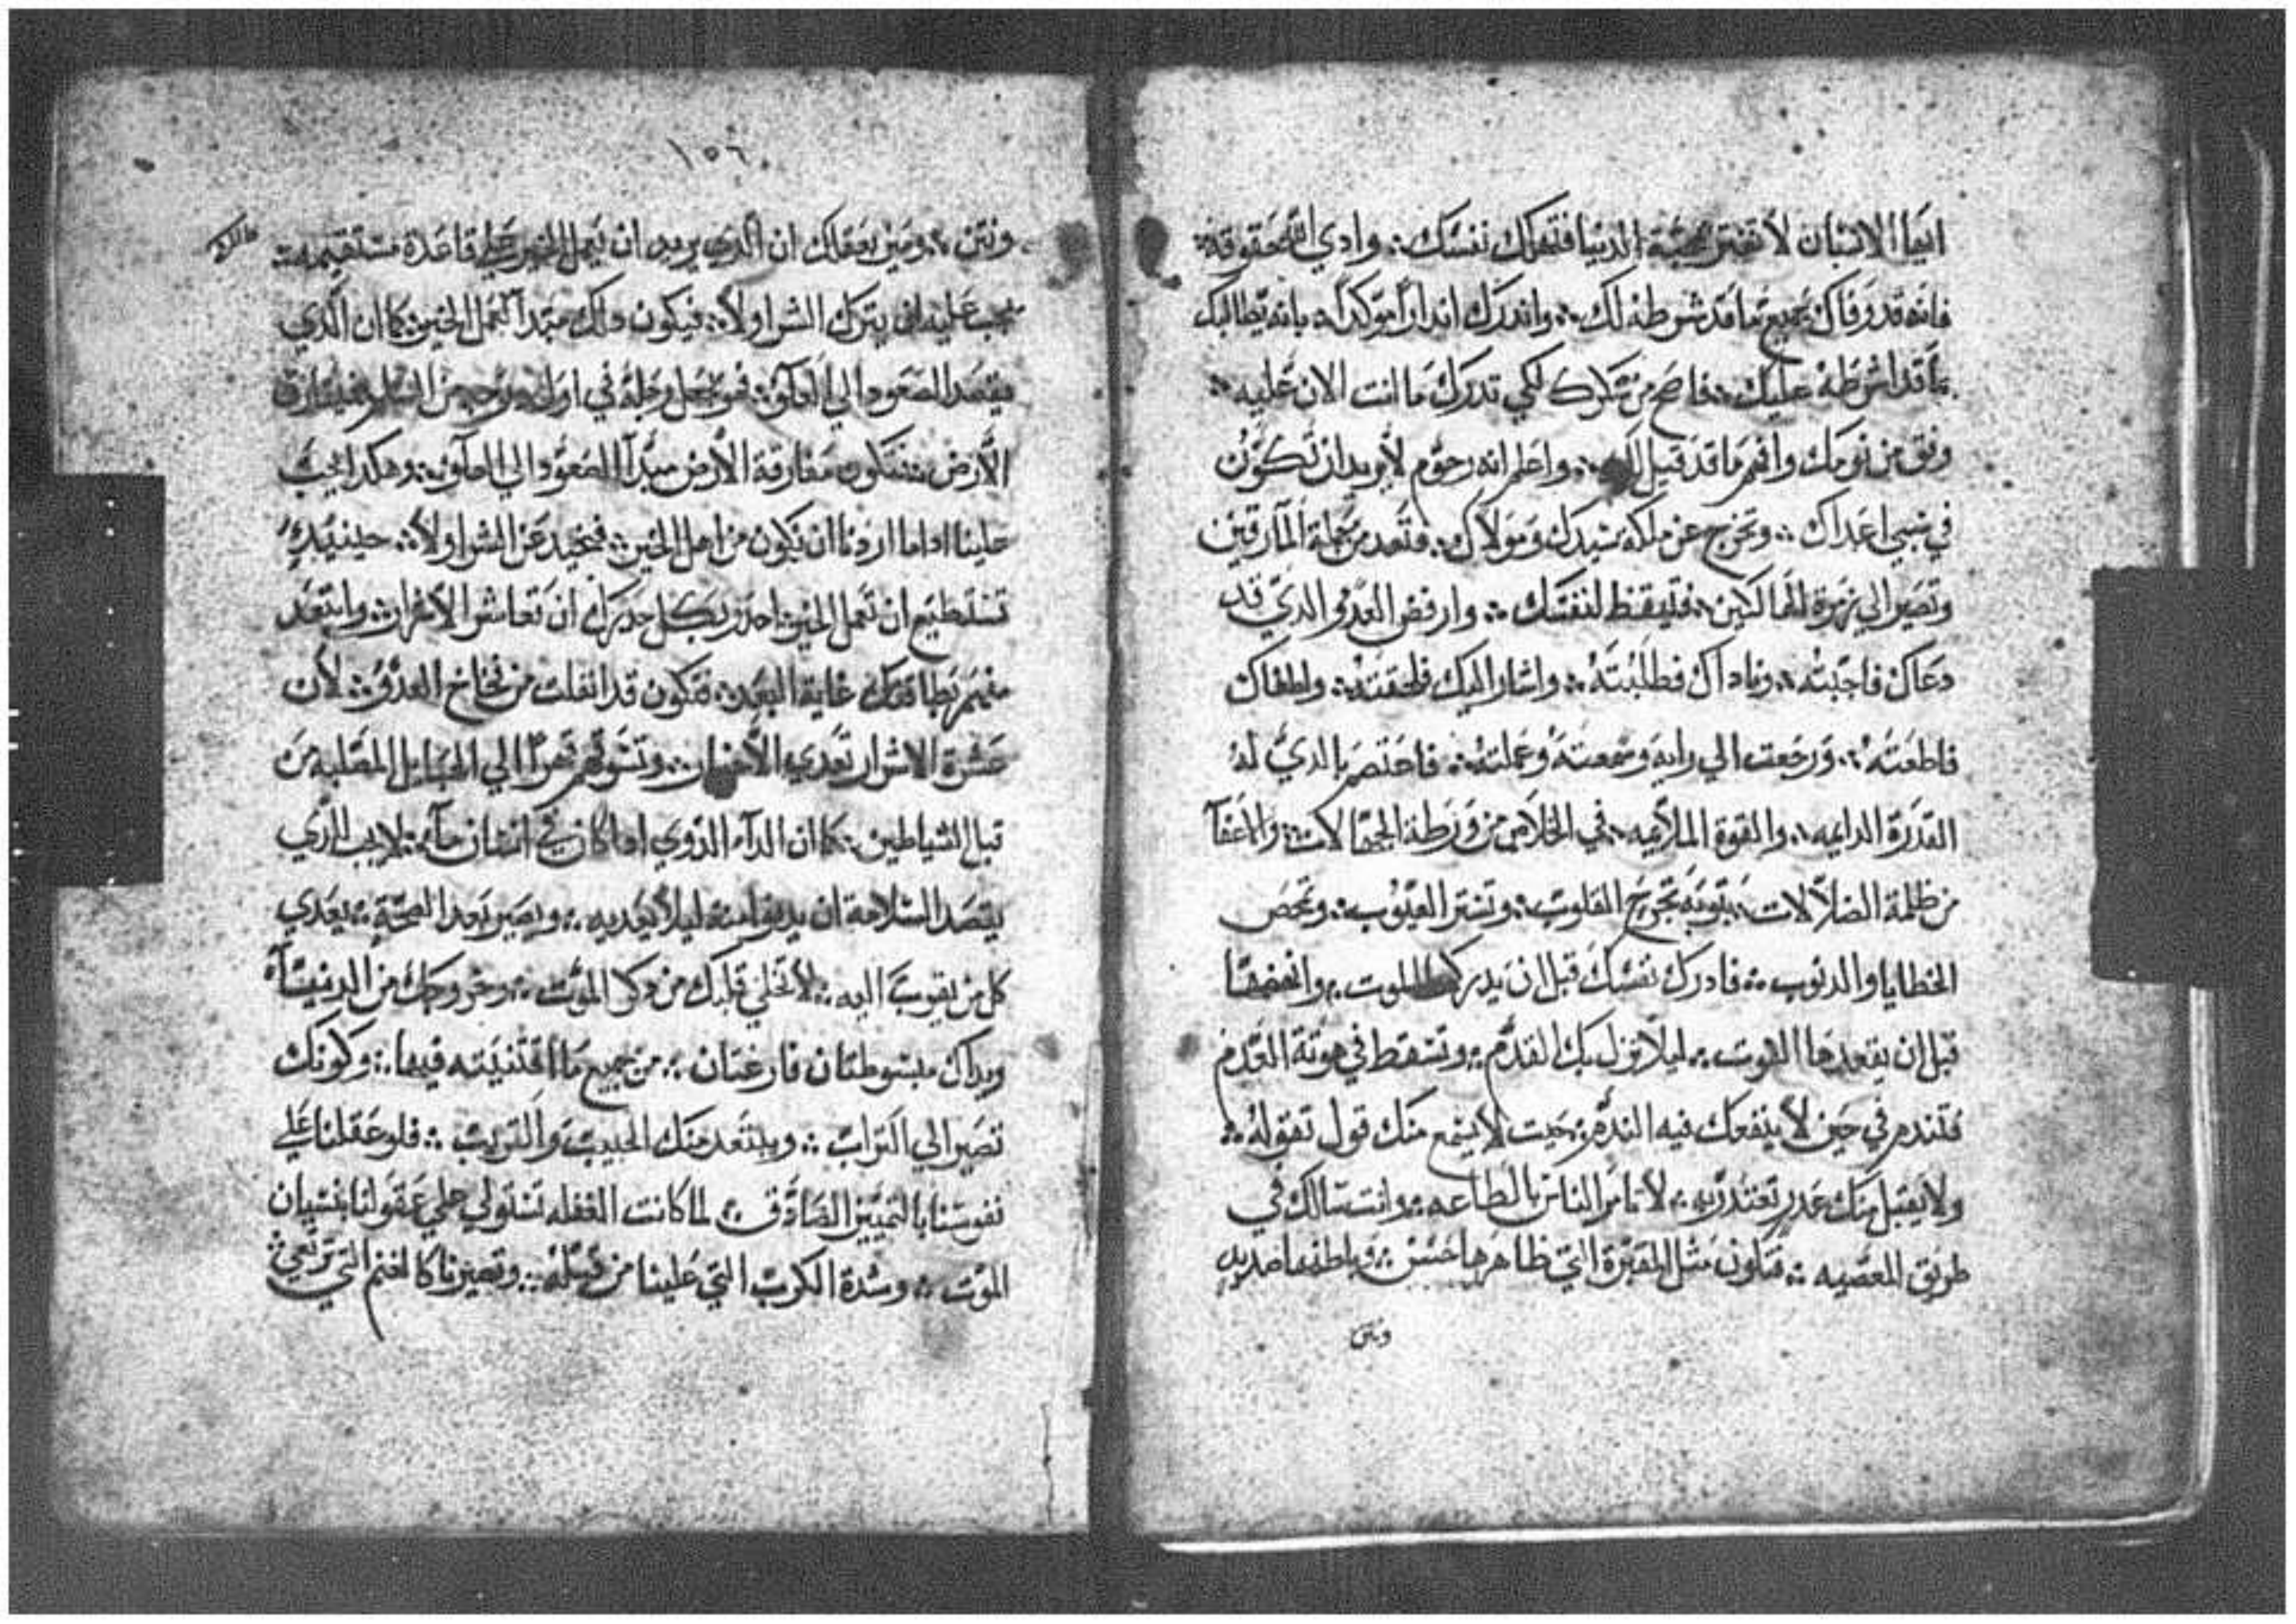 ايها الانسان لا تغتر بمحبة الدنيا فتهلك نفسك ؞ وادي لله حقوقه ؞
فانه قد وفاك بجميع ما قد شرطه لك ؞ واندرك اندارا موكدا ؞ بانه يطالبك
بما قد اشرطه عليك ؞ فاصح من سكرك لكي تدرك ما انت الان عليه ؞
وفق من نومك وافهم ما قد قيل لك ؞ واعلم انه رحوم لا يريد ان تكون
في سبي اعداك ؞ وتخرج عن ملكة سيدك ومولاك ؞ وتعد من جملة المارقين
وتصير الي زمرة الهالكين ؞ فتيقظ لنفسك ؞ وارفض العدو الدي قد
دعاك فاجبته ؞ وناداك فطلبته ؞ واشار اليك فلحقته ؞ واطغاك
فاطعته ؞ ورجعت الي رايه وسمعته وعملته ؞ فاعتصم بالدي له
القدرة الدايمه ؞ والقوة الملايمه ؞ في الخلاص من ورطة الجهالات ؞ والاعفآ
من ظلمة الضلالات ؞ بتوبة تجرح القلوب ؞ وتستر العيوب ؞ وتمحص
الخطايا والدنوب ؞ فادرك نفسك قبل ان يدركها الموت ؞ وانهضها
قبل ان يقعدها الفوت ؞ ليلا تزل بك القدم ؞ وتسقط في هوتة العدم
فتندم في حين لا ينفعك فيه الندم ؞ حيت لا يسمع منك قول تقوله ؞
ولا يقبل منك عدر تعتدر به ؞ لا تامر الناس بالطاعه ؞ وانت سالك في
طريق المعصيه ؞ فتكون مثل المقبرة التي ظاهرها حسن ؞ وباطنها صديد
ونتن
١٥٦
ونتن ؞ ومين بعقلك ان الدي يريد ان يعمل الخير علي قاعدة مستقيمه ؞
يجب عليه ان يترك الشر اولا ؞ فيكون دلك مبتدا لعمل الخير ؞ كما ان الدي
يقصد الصعود الي العلو ؞ فهو يجعل رجله في اول درجه من السلم فيفارق
الارض ؞ فتكون مفارقة الارض مبدا الصعود الي العلو ؞ وهكدا يجب
علينا ادا ما اردنا ان نكون من اهل الخير ؞ فنحيد عن الشر اولا ؞ حينيد
تستطيع ان تعمل الخير ؞ احدر بكل جهدك ان تعاشر الاشرار ؞ وابتعد
منهم بطاقتك غاية البعد ؞ فتكون قد انفلت من فخاخ العدو ؞ لان
عشرة الاشرار تعدي الاخيار ؞ وتسوقهم قهرا الي الحبايل المنصلبه من
قبل الشياطين ؞ كما ان الدآء الدوي ادا كان في انسان مآ ؞ يجب للدي
يقصد السلامة ان يدنوا منه ليلا يعديه ؞ ويصير بعد الصحة ؞ يعدي
كل من يقرب اليه ؞ لا تخلي قلبك من دكر الموت ؞ وخروجك من الدنيآ
ويداك مبسوطتان فارغتان ؞ من جميع ما اقتنيته فيها ؞ وكونك
تصير الي التراب ؞ ويبتعد منك الحبيب والقريب ؞ فلو عقلنا علي
نفوسنا بالتمييز الصادق ؞ لما كانت الغفله تستولي علي عقولنا بنسيان
الموت ؞ وشدة الكرب التي علينا من قبله ؞ وتصيرنا كالغنم التي ترتعي